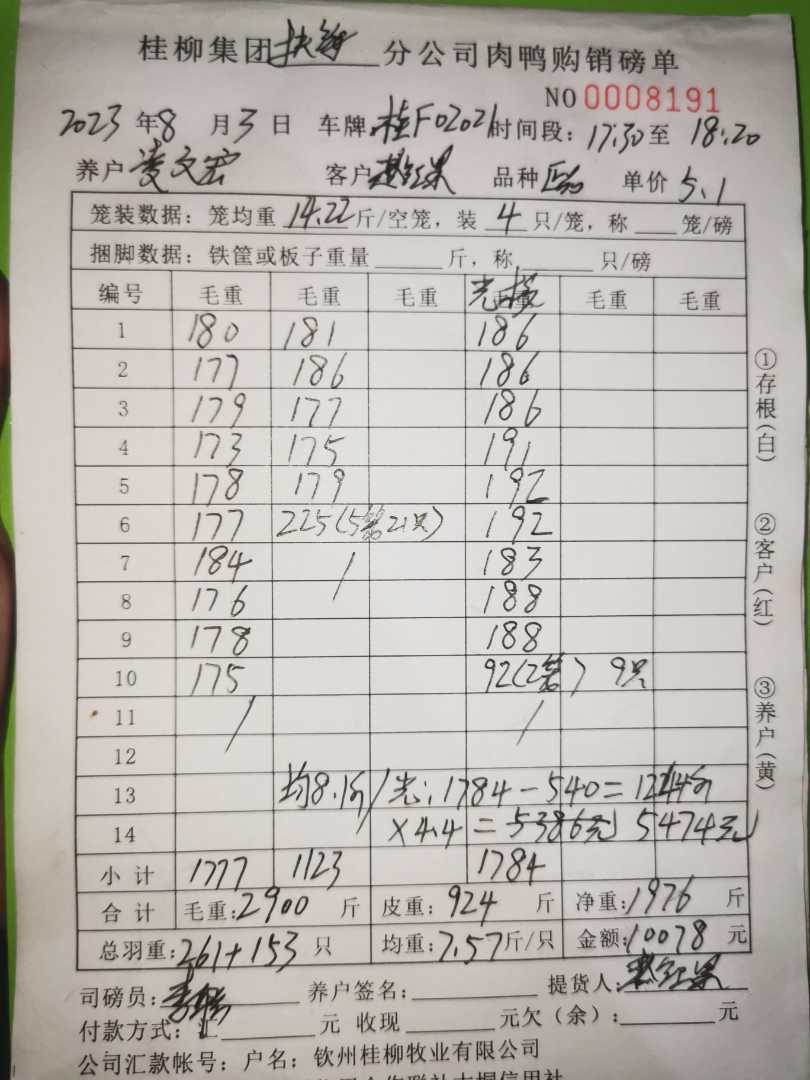 桂柳集团扶绥分公司肉鸭购销磅单
NO 0008191
2023年8月3日 车牌:桂F02021时间段:17:30至18:20
养户凌文宏 客户 品种 单价5.1
笼装数据:笼均重14.22斤/空笼,装4只/笼,称 笼/磅
捆脚数据:铁筐或板子重量 斤,称 只/磅
编号 毛重 毛重 毛重 毛重 毛重
1 180 181 186
2 177 186 186
3 179 177 186
4 173 175 191
5 178 179 192
6 177 225(5笼21只) 192
7 184 / 183
8 176 188
9 178 188
10 175 92(2笼) 9只
11 / /
12
13 均8.1斤/光:1784-540=1244斤
14 ×4.4=5386元 5474元
小计 1777 1123 1784
合计 毛重:2900斤 皮重:924斤 净重:1976斤
总羽重:261+153只 均重:7.57斤/只 金额:10078元
司磅员: 养户签名: 提货人:
付款方式:汇 元 收现 元欠(余): 元
公司汇款帐号:户名:钦州桂柳牧业有限公司
①存根(白) ②客户(红) ③养户(黄)